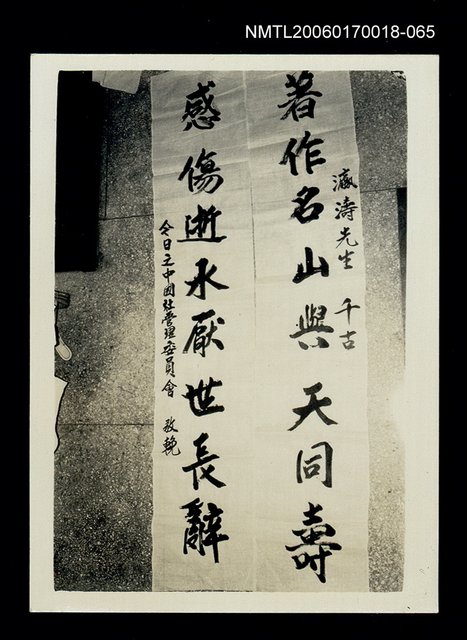 NMTL20060170018-065
瀛濤先生 千古
著作名山與天同壽
感傷逝水厭世長辭
今日之中國社管理委員會 敬輓